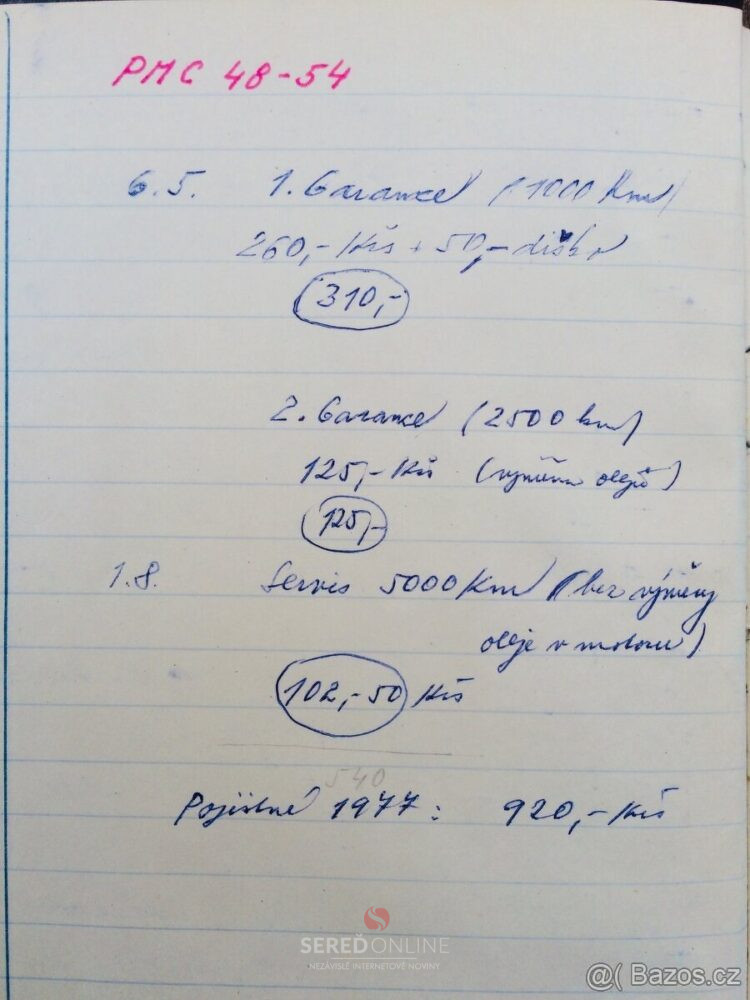 PMC 48-54
6.5. 1. Garance (1000 Km)
260,- Kčs + 50,- dýško
310,-
2. Garance (2500 km)
125,- Kčs (výměna olejů)
125,-
1.8. Servis 5000 Km (bez výměny
oleje v motoru)
102,-50 Kčs
540
Pojistné 1977: 920,- Kčs
SEREĎONLINE
NEZÁVISLÉ INTERNETOVÉ NOVINY
@( Bazos.cz